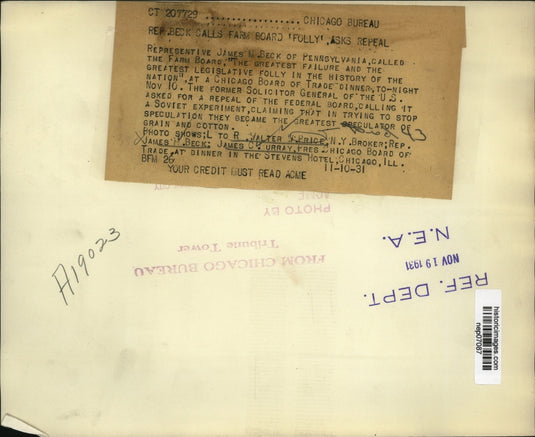 CT 207729 ................... CHICAGO BUREAU
REP.BECK CALLS FARM BOARD 'FOLLY', ASKS REPEAL
REPRESENTIVE JAMES M.BECK OF PENNSYLVANIA,CALLED
THE FARM BOARD,"THE GREATEST FAILURE AND THE
GREATEST LEGISLATIVE FOLLY IN THE HISTORY OF THE
NATION",AT A CHICAGO BOARD OF TRADE DINNER,TO-NIGHT
NOV 10. THE FORMER SOLICITOR GENERAL OF THE U.S.
ASKED FOR A REPEAL OF THE FEDERAL BOARD,CALLING IT
A SOVIET EXPERIMENT,CLAIMING THAT IN TRYING TO STOP
SPECULATION THEY BECAME THE GREATEST SPECULATOR OF
GRAIN AND COTTON.
PHOTO SHOWS:L TO R WALTER W.PRICE,N.Y.BROKER;REP.
JAMES M.BECK; JAMES C. MURRAY,PRES CHICAGO BOARD OF
TRADE,AT DINNER IN THE STEVENS HOTEL,CHICAGO,ILL.
BFM 26 11-10-31
YOUR CREDIT MUST READ ACME
PHOTO BY
ACME
FROM CHICAGO BUREAU
Tribune Tower
A19023
REF. DEPT.
NOV 19 1931
N.E.A.
historicimages.com
nep07087